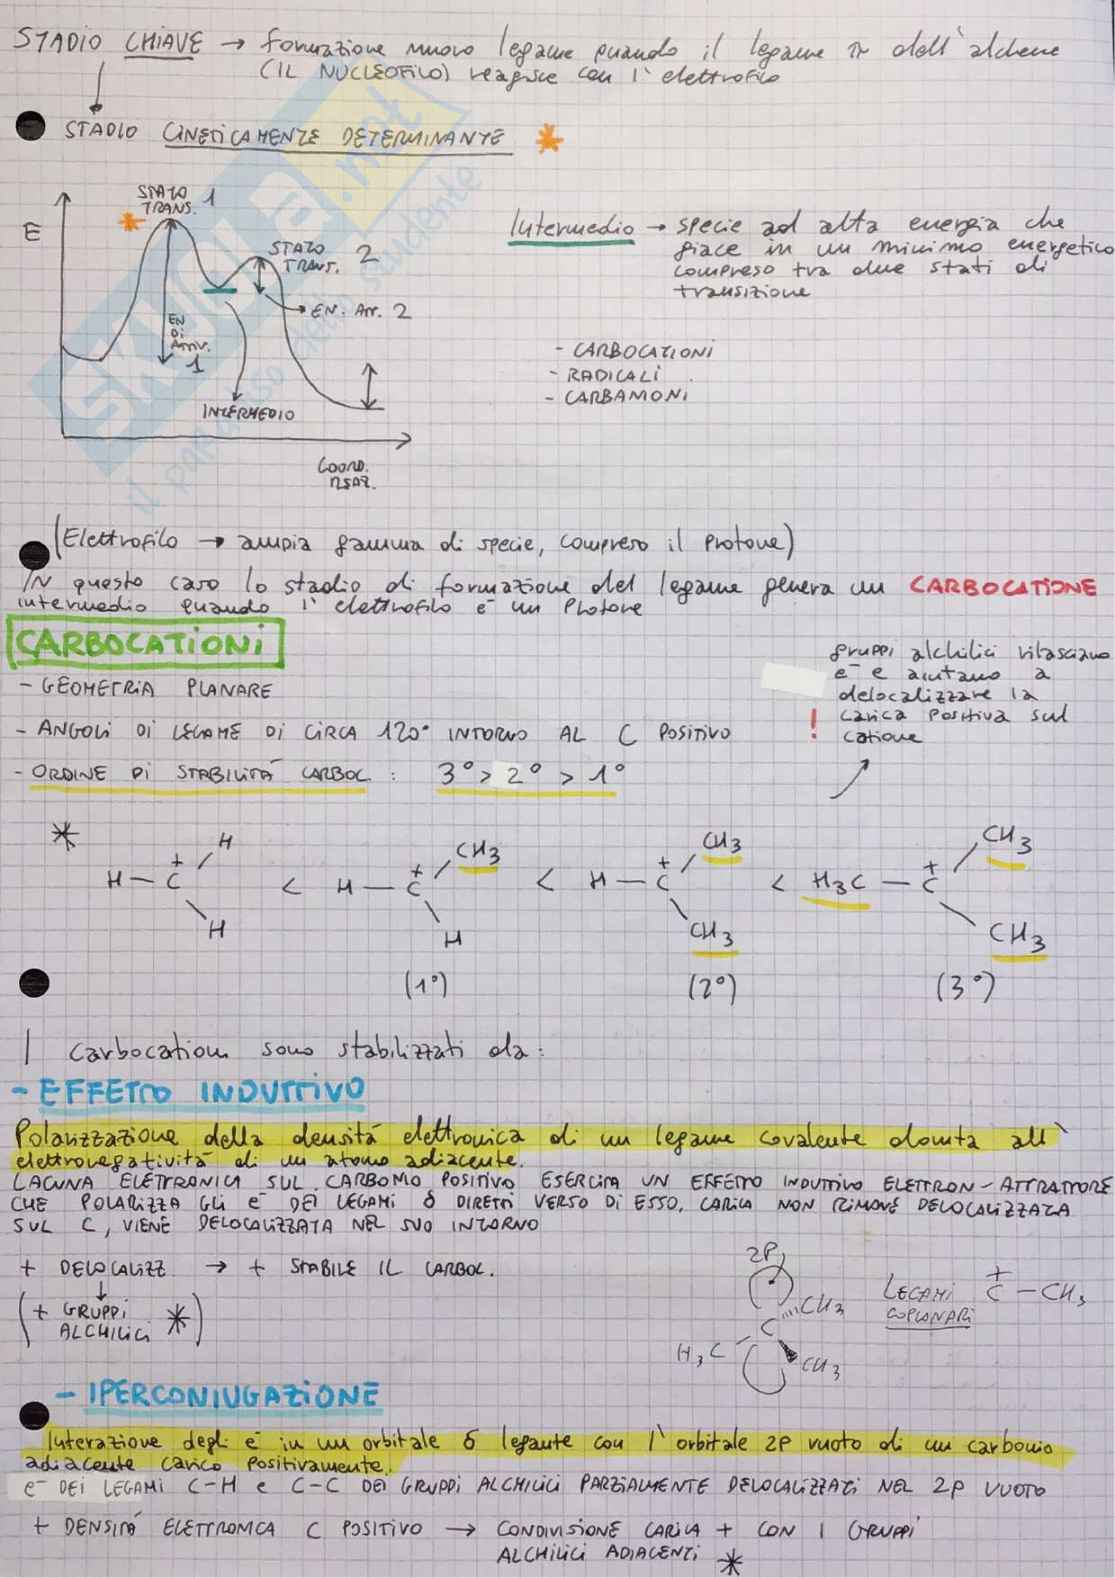 STADIO CHIAVE → formazione nuovo legame quando il legame π dell'alchene
(IL NUCLEOFILO) reagisce con l'elettrofilo
STADIO CINETICAMENTE DETERMINANTE *
STATO
TRANS. 1
E
STATO
TRANS. 2
EN
DI
ATTIV.
1
EN. ATT. 2
INTERMEDIO
COORD.
REAZ.
Intermedio → specie ad alta energia che
giace in un minimo energetico
compreso tra due stati di
transizione
- CARBOCATIONI
- RADICALI
- CARBANIONI
(Elettrofilo → ampia gamma di specie, compreso il protone)
IN questo caso lo stadio di formazione del legame genera un CARBOCATIONE
intermedio quando l'elettrofilo è un Protone
CARBOCATIONI
gruppi alchilici rilasciano
e⁻ e aiutano a
delocalizzare la
! carica positiva sul
catione
- GEOMETRIA PLANARE
- ANGOLI DI LEGAME DI CIRCA 120° INTORNO AL C POSITIVO
- ORDINE DI STABILITÁ CARBOC. : 3° > 2° > 1°
*
H
H — C +
H
<
CH3
H — C +
H
(1°)
<
CH3
H — C +
CH3
(2°)
<
CH3
H3C — C +
CH3
(3°)
I Carbocationi sono stabilizzati da:
- EFFETTO INDUTTIVO
Polarizzazione della densitá elettronica di un legame covalente dovuta all'
elettronegativitá di un atomo adiacente.
LACUNA ELETTRONICA SUL CARBONIO POSITIVO ESERCITA UN EFFETTO INDUTTIVO ELETTRON-ATTRATTORE
CHE POLARIZZA GLI e⁻ DEI LEGAMI δ DIRETTI VERSO DI ESSO. CARICA NON RIMANE DELOCALIZZATA
SUL C, VIENE DELOCALIZZATA NEL SUO INTORNO
+ DELOCALIZZ. → + STABILE IL CARBOC.
(+ GRUPPI
ALCHILICI *)
2P
CH3
C
H3C
CH3
LEGAMI
COPLANARI
+
C — CH3
- IPERCONIUGAZIONE
Interazione degli e⁻ in un orbitale δ legante con l'orbitale 2P vuoto di un carbonio
adiacente carico positivamente.
e⁻ DEI LEGAMI C-H e C-C DEI GRUPPI ALCHILICI PARZIALMENTE DELOCALIZZATI NEL 2P VUOTO
+ DENSITÁ ELETTRONICA C POSITIVO → CONDIVISIONE CARICA + CON I GRUPPI
ALCHILICI ADIACENTI *